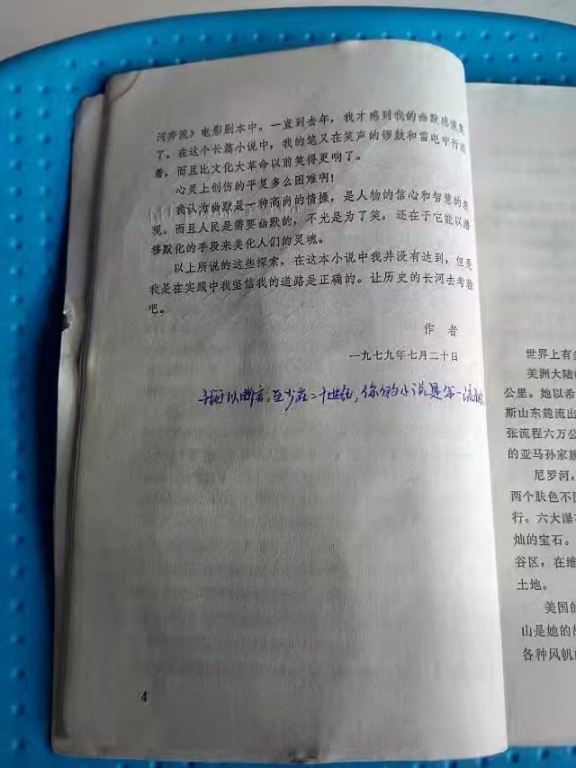 河奔流》电影剧本中。一直到去年，我才感到我的幽默感恢复
了。在这个长篇小说中，我的笔又在笑声的锣鼓和雷电中行进
着，而且比文化大革命以前笑得更响了。
心灵上创伤的平复多么困难啊！
我认为幽默是一种高尚的情操，是人物的信心和智慧的表
现。而且人民是需要幽默的，不光是为了笑，还在于它能以潜
移默化的手段来美化人们的灵魂。
以上所说的这些探索，在这本小说中我并没有达到，但是
我是在实践中我坚信我的道路是正确的。让历史的长河去考验
吧。
作者
一九七九年七月二十日
我可以断言，至少在二十世纪，你的小说是第一流的
4
世界上有
美洲大陆的
公里。她以希
斯山东麓流出
张流程六万公
的亚马孙家族
尼罗河，
两个肤色不同
行。六大瀑
灿的宝石。
谷区，在维
土地。
美国的
山是她的
各种风帆